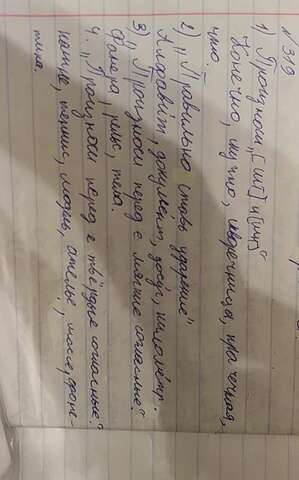 № 319
1) „Произноси „[шт] и [шн]"
Конечно, скучно, скворечница, прачечная,
что.
2) „Правильно ставь ударение"
Алфавит, документ, досуг, километр.
3) „Произноси перед е мягкие согласные?
Фанера, рельс, тема.
4. „Произноси перед е твёрдые согласные?
теннис, модель, ателье, шоссе,